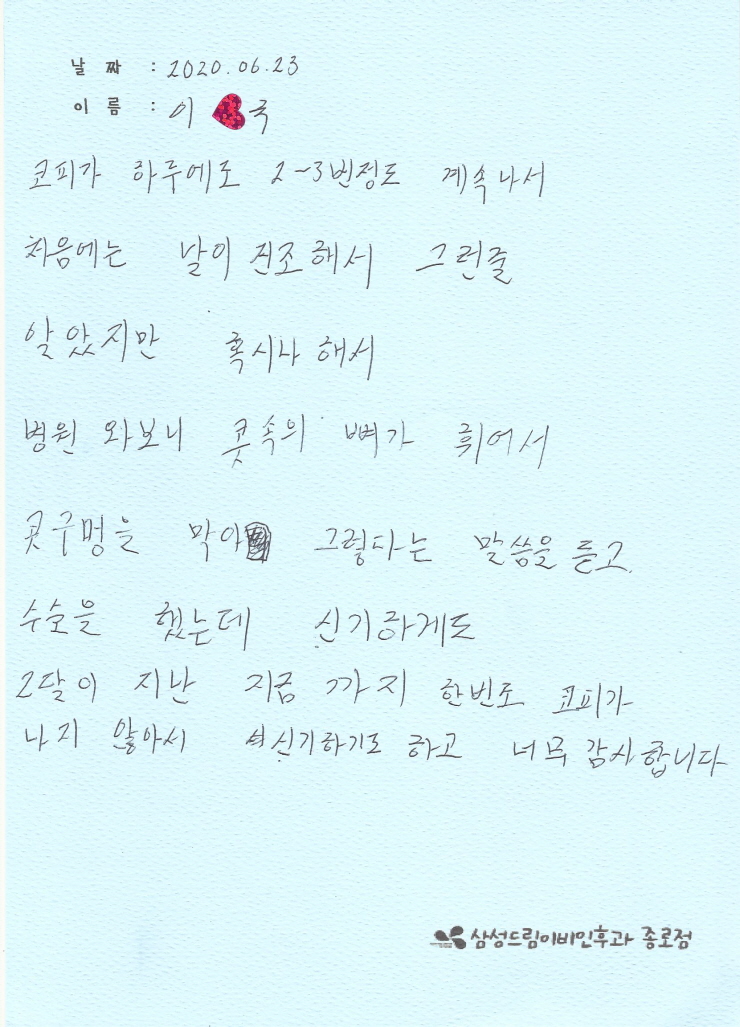 날 짜 : 2020.06.23
이 름 : 이 국
코피가 하루에도 2~3번정도 계속나서
처음에는 날이 건조해서 그런줄
알았지만 혹시나 해서
병원 와보니 콧속의 뼈가 휘어서
콧구멍을 막아 그렇다는 말씀을 듣고
수술을 했는데 신기하게도
2달이 지난 지금 까지 한번도 코피가
나지 않아서 신기하기도 하고 너무 감사합니다
삼성드림이비인후과 종로점